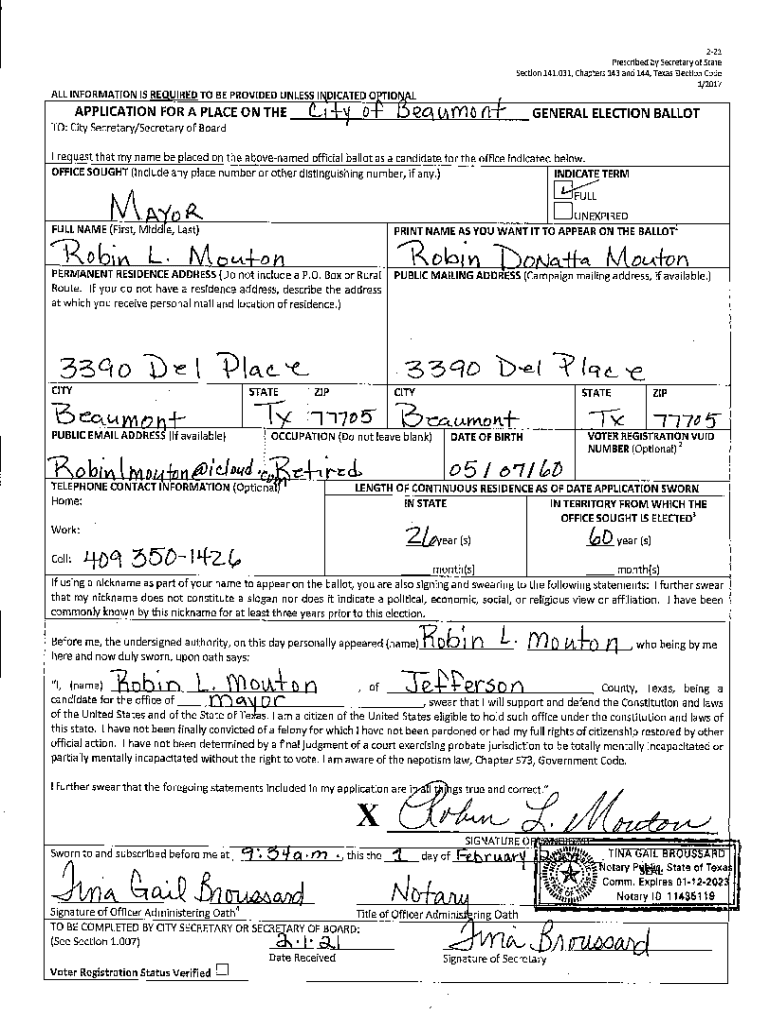 2-21
Prescribed by Secretary of State
Section 141.031, Chapters 143 and 144, Texas Election Code
1/2017
ALL INFORMATION IS REQUIRED TO BE PROVIDED UNLESS INDICATED OPTIONAL
APPLICATION FOR A PLACE ON THE City of Beaumont GENERAL ELECTION BALLOT
TO: City Secretary/Secretary of Board
I request that my name be placed on the above-named official ballot as a candidate for the office indicated below.
OFFICE SOUGHT (Include any place number or other distinguishing number, if any.) INDICATE TERM
MAYOR FULL
UNEXPIRED
FULL NAME (First, Middle, Last) PRINT NAME AS YOU WANT IT TO APPEAR ON THE BALLOT
Robin L. Mouton Robin Donatta Mouton
PERMANENT RESIDENCE ADDRESS (Do not include a P.O. Box or Rural PUBLIC MAILING ADDRESS (Campaign mailing address, if available.)
Route. If you do not have a residence address, describe the address
at which you receive personal mail and location of residence.)
3390 Del Place 3390 Del Place
CITY STATE ZIP CITY STATE ZIP
Beaumont Tx 77705 Beaumont Tx 77705
PUBLIC EMAIL ADDRESS (If available) OCCUPATION (Do not leave blank) DATE OF BIRTH VOTER REGISTRATION VUID
NUMBER (Optional) 2
Robinlmouton@icloud.com Retired 05/07/60
TELEPHONE CONTACT INFORMATION (Optional) LENGTH OF CONTINUOUS RESIDENCE AS OF DATE APPLICATION SWORN
Home: IN STATE IN TERRITORY FROM WHICH THE
OFFICE SOUGHT IS ELECTED3
Work: year (s) 60 year (s)
Cell: 409 350-1426
month(s) month(s)
If using a nickname as part of your name to appear on the ballot, you are also signing and swearing to the following statements: I further swear
that my nickname does not constitute a slogan nor does it indicate a political, economic, social, or religious view or affiliation. I have been
commonly known by this nickname for at least three years prior to this election.
Before me, the undersigned authority, on this day personally appeared (name) Robin L. Mouton, who being by me
here and now duly sworn, upon oath says:
"I, (name) Robin L. Mouton, of Jefferson County, Texas, being a
candidate for the office of mayor, swear that I will support and defend the Constitution and laws
of the United States and of the State of Texas. I am a citizen of the United States eligible to hold such office under the constitution and laws of
this state. I have not been finally convicted of a felony for which I have not been pardoned or had my full rights of citizenship restored by other
official action. I have not been determined by a final judgment of a court exercising probate jurisdiction to be totally mentally incapacitated or
partially mentally incapacitated without the right to vote. I am aware of the nepotism law, Chapter 573, Government Code.
I further swear that the foregoing statements included in my application are in all things true and correct."
X Robin L. Mouton
SIGNATURE OF
Sworn to and subscribed before me at 9:34a.m., this the 1 day of February
TINA GAIL BROUSSARD
Notary Public, State of Texas
SEAL
Comm. Expires 01-12-2023
Notary ID 11435119
Tina Gail Broussard Notary
Signature of Officer Administering Oath4 Title of Officer Administering Oath
TO BE COMPLETED BY CITY SECRETARY OR SECRETARY OF BOARD:
(See Section 1.007) 2-1-21 Tina Broussard
Date Received Signature of Secretary
Voter Registration Status Verified